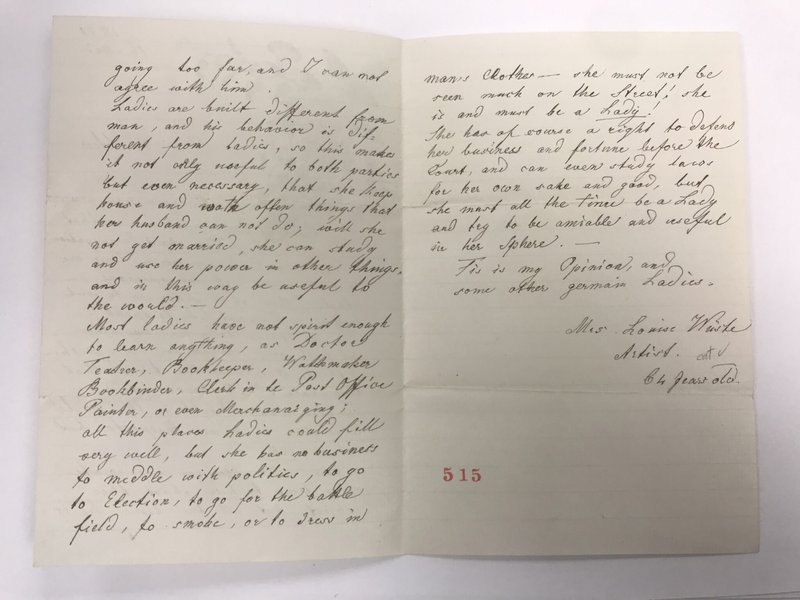 going too far, and I can not
agree with him.
Ladies are built different from
man, and his behavior is dif-
ferent from ladies, so this makes
it not only useful to both parties
but even necessary, that she keep
house and offen things that
her husband can not do; will she
not get married, she can study
and use her power in other things.
and in this way be useful to
the would. —
Most ladies have not spirit enough
to learn anything, as Doctor
Teatser, Bookkeeper, Wathmaker
Bookbinder, Clerk in te Post Office
Painter, or even Merchanaiging;
all this places Ladies could fill
very well, but she has no business
to meddle with politics, to go
to Election, to go for the battle
field, to smoke, or to dress in
man's Clothes — she must not be
seen much on the Street; she
is and must be a Lady!
She has of course a right to defens
her business and fortune before the
Court, and can even study laws
for her own sake and good, but
she must all the time be a Lady
and try to be amiable and useful
in her Sphere. —
Tis is my Opinion, and
some other germain Ladies.
Mrs. Louise Wüste
Artist.
64 Jears old.
515